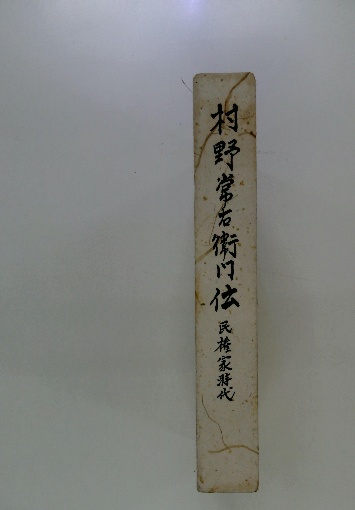 村野常右衛門伝
民権家時代